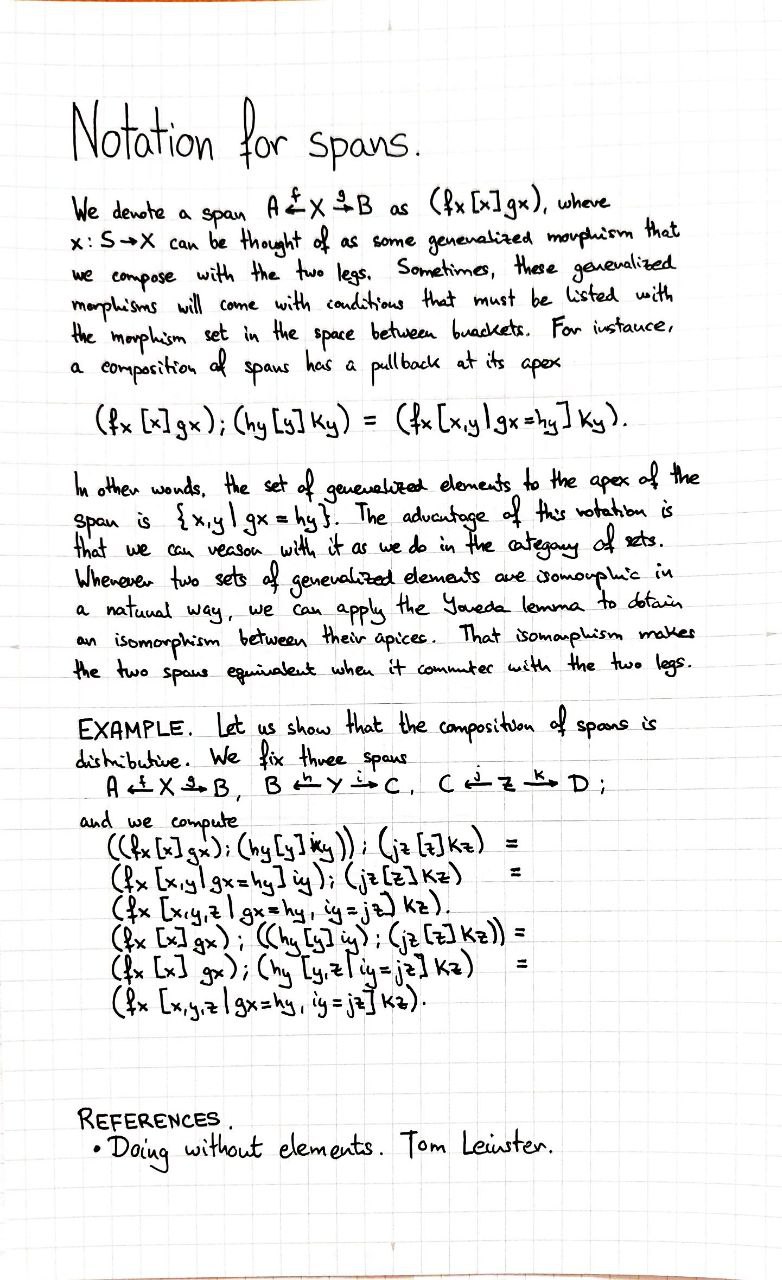 Notation for spans.
We denote a span A <-f- X -g-> B as (fx [x] gx), where
x : S → X can be thought of as some generalized morphism that
we compose with the two legs. Sometimes, these generalized
morphisms will come with conditions that must be listed with
the morphism set in the space between brackets. For instance,
a composition of spans has a pullback at its apex
(fx [x] gx) ; (hy [y] ky) = (fx [x,y | gx = hy] ky).
In other words, the set of generalized elements to the apex of the
span is {x,y | gx = hy}. The advantage of this notation is
that we can reason with it as we do in the category of sets.
Whenever two sets of generalized elements are isomorphic in
a natural way, we can apply the Yoneda lemma to obtain
an isomorphism between their apices. That isomorphism makes
the two spans equivalent when it commutes with the two legs.
EXAMPLE. Let us show that the composition of spans is
distributive. We fix three spans
A <-f- X -g-> B, B <-h- Y -i-> C, C <-j- Z -k-> D ;
and we compute
((fx [x] gx) ; (hy [y] iy)) ; (jz [z] kz) =
(fx [x,y | gx = hy] iy) ; (jz [z] kz) =
(fx [x,y,z | gx = hy, iy = jz] kz).
(fx [x] gx) ; ((hy [y] iy) ; (jz [z] kz)) =
(fx [x] gx) ; (hy [y,z | iy = jz] kz) =
(fx [x,y,z | gx = hy, iy = jz] kz).
REFERENCES.
• Doing without elements. Tom Leinster.